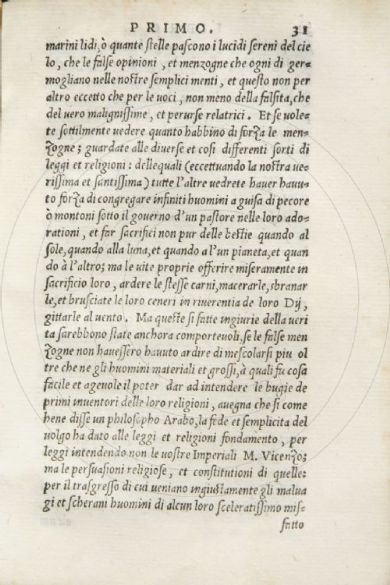 PRIMO. 31
marini lidi, ò quante stelle pascono i lucidi sereni del cie
lo, che le false opinioni, et menzogne che ogni di ger-
mogliano nelle nostre semplici menti, et questo non per
altro eccetto che per le uoci, non meno della falsità, che
del uero malignissime, et peruerse relatrici. Et se uole-
te sottilmente uedere quanto habbino di forza le men-
zogne; guardate alle diuerse et cosi differenti sorti di
leggi et religioni: dellequali (eccettuando la nostra ue-
rissima et santissima) tutte l'altre uedrete hauer hauu-
to forza di congregare infiniti huomini a guisa di pecore
ò montoni sotto il gouerno d'un pastore nelle loro ado-
rationi, et far sacrifici non pur delle bestie quando al
sole, quando alla luna, et quando a l'un pianeta, et quan
do à l'altro; ma le uite proprie offerire miseramente in
sacrificio loro, ardere le stesse carni, macerarle, sbranar
le, et brusciate le loro ceneri in riuerentia de loro Dij,
gittarle al uento. Ma queste si fatte ingiurie della ueri
ta sarebbono state anchora comporteuoli, se le false men
zogne non hauessero hauuto ardire di mescolarsi piu ol
tre che ne gli huomini materiali et grossi, à quali fu cosa
facile et ageuole il poter dar ad intendere le bugie de
primi inuentori delle loro religioni, auegna che si come
bene disse un philosopho Arabo, la fede et semplicita del
uolgo ha dato alle leggi et religioni fondamento, per
leggi intendendo non le uostre Imperiali M. Vicenzo;
ma le persuasioni religiose, et constitutioni di quelle:
per il trasgresso di cui ueniano ingiustamente gli malua
gi et scherani huomini di alcun loro sceleratissimo mis-
fatto